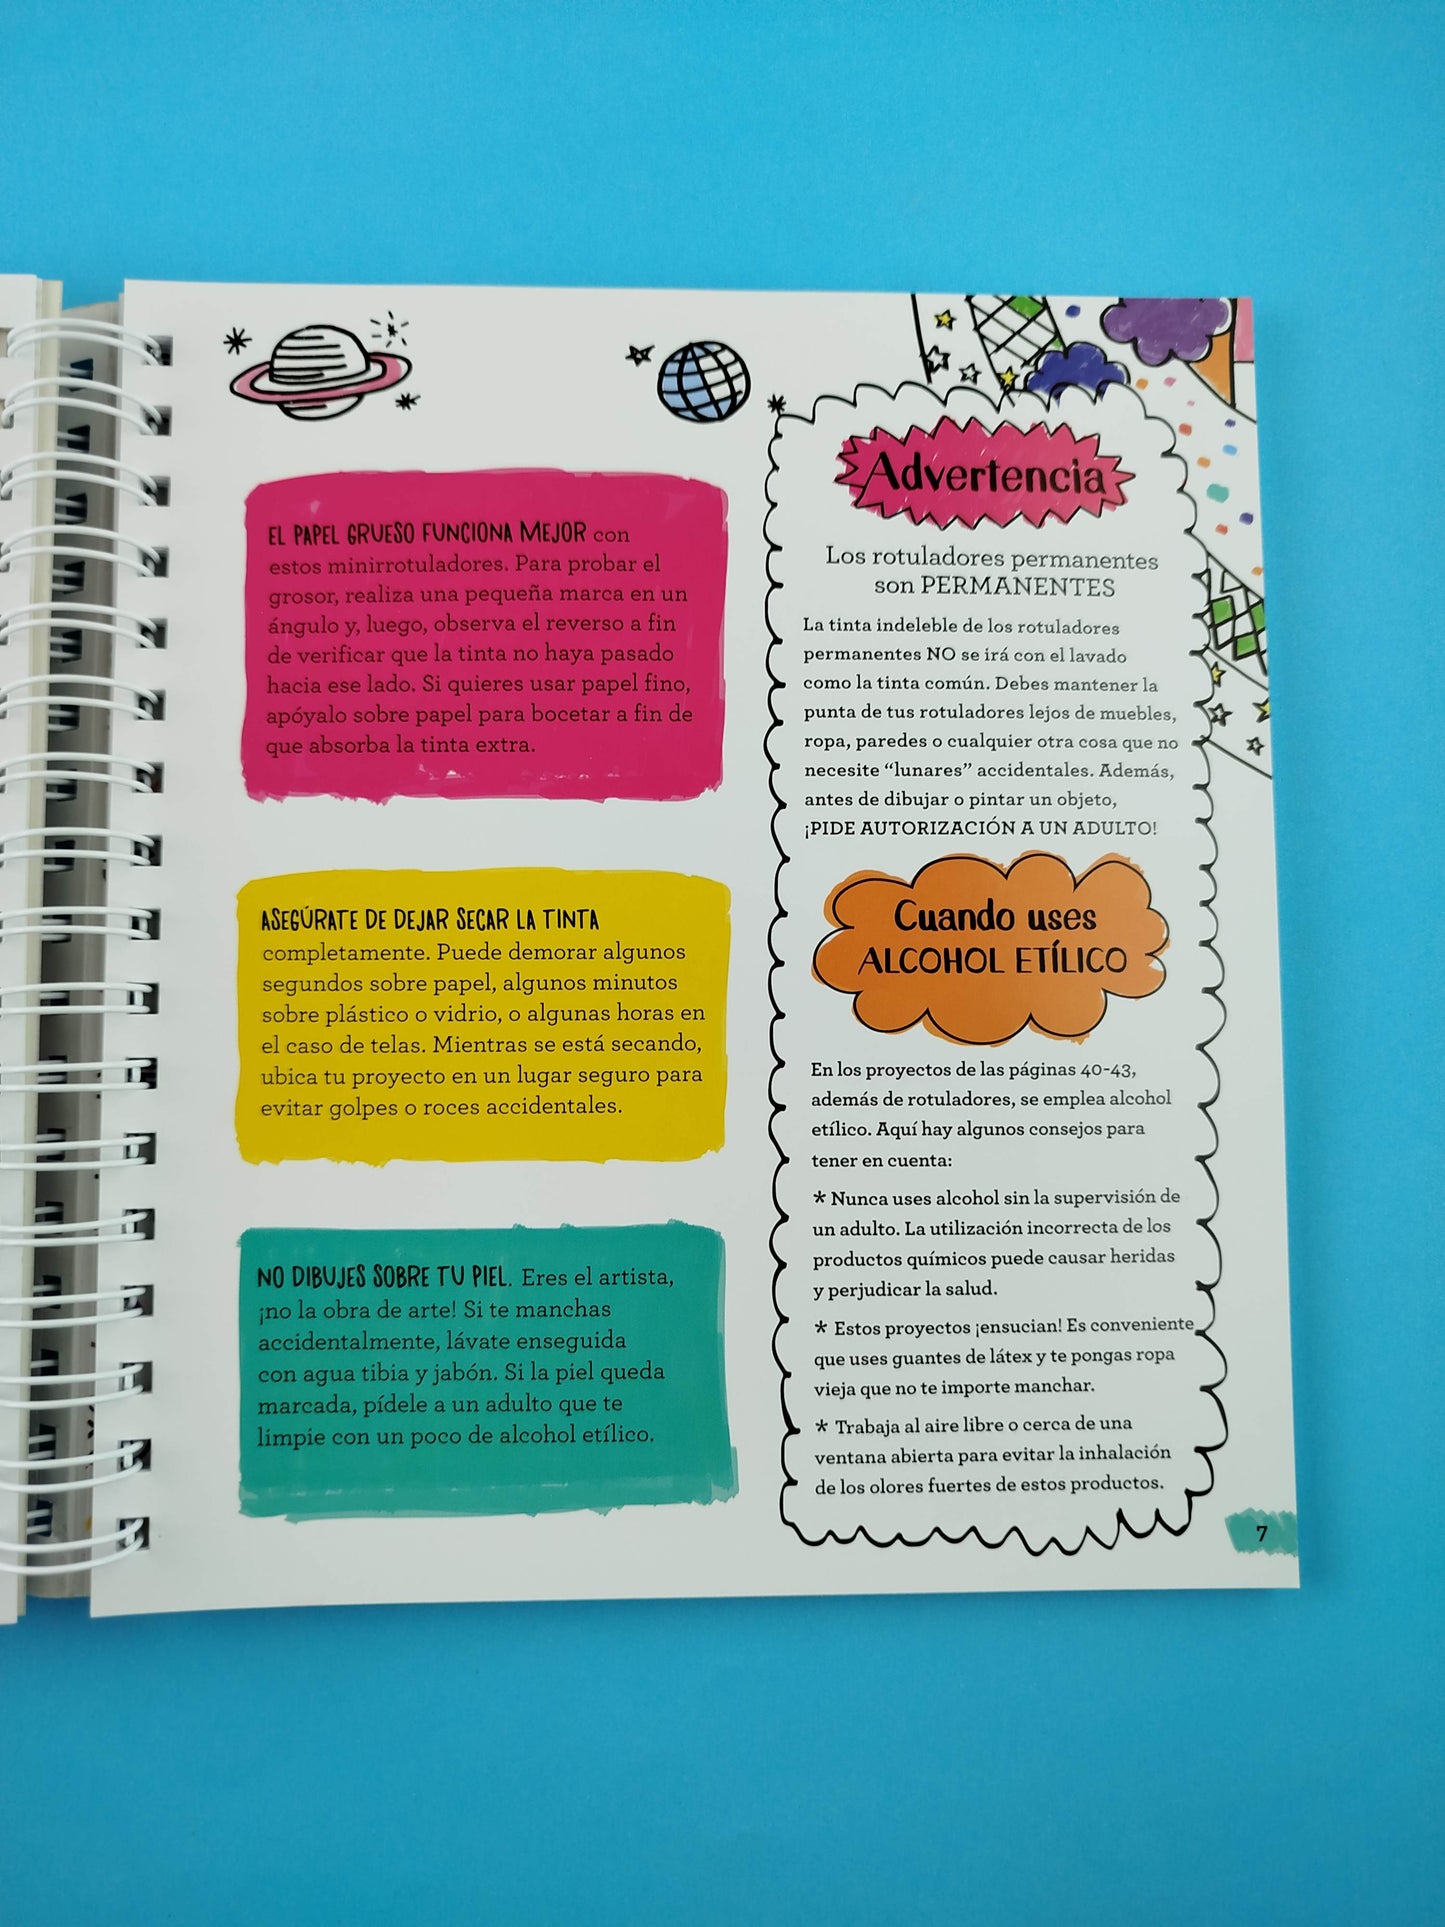 EL PAPEL GRUESO FUNCIONA MEJOR con
estos minirrotuladores. Para probar el
grosor, realiza una pequeña marca en un
ángulo y, luego, observa el reverso a fin
de verificar que la tinta no haya pasado
hacia ese lado. Si quieres usar papel fino,
apóyalo sobre papel para bocetar a fin de
que absorba la tinta extra.
ASEGÚRATE DE DEJAR SECAR LA TINTA
completamente. Puede demorar algunos
segundos sobre papel, algunos minutos
sobre plástico o vidrio, o algunas horas en
el caso de telas. Mientras se está secando,
ubica tu proyecto en un lugar seguro para
evitar golpes o roces accidentales.
NO DIBUJES SOBRE TU PIEL. Eres el artista,
¡no la obra de arte! Si te manchas
accidentalmente, lávate enseguida
con agua tibia y jabón. Si la piel queda
marcada, pídele a un adulto que te
limpie con un poco de alcohol etílico.
Advertencia
Los rotuladores permanentes
son PERMANENTES
La tinta indeleble de los rotuladores
permanentes NO se irá con el lavado
como la tinta común. Debes mantener la
punta de tus rotuladores lejos de muebles,
ropa, paredes o cualquier otra cosa que no
necesite “lunares” accidentales. Además,
antes de dibujar o pintar un objeto,
¡PIDE AUTORIZACIÓN A UN ADULTO!
Cuando uses
ALCOHOL ETÍLICO
En los proyectos de las páginas 40-43,
además de rotuladores, se emplea alcohol
etílico. Aquí hay algunos consejos para
tener en cuenta:
* Nunca uses alcohol sin la supervisión de
un adulto. La utilización incorrecta de los
productos químicos puede causar heridas
y perjudicar la salud.
* Estos proyectos ¡ensucian! Es conveniente
que uses guantes de látex y te pongas ropa
vieja que no te importe manchar.
* Trabaja al aire libre o cerca de una
ventana abierta para evitar la inhalación
de los olores fuertes de estos productos.
7